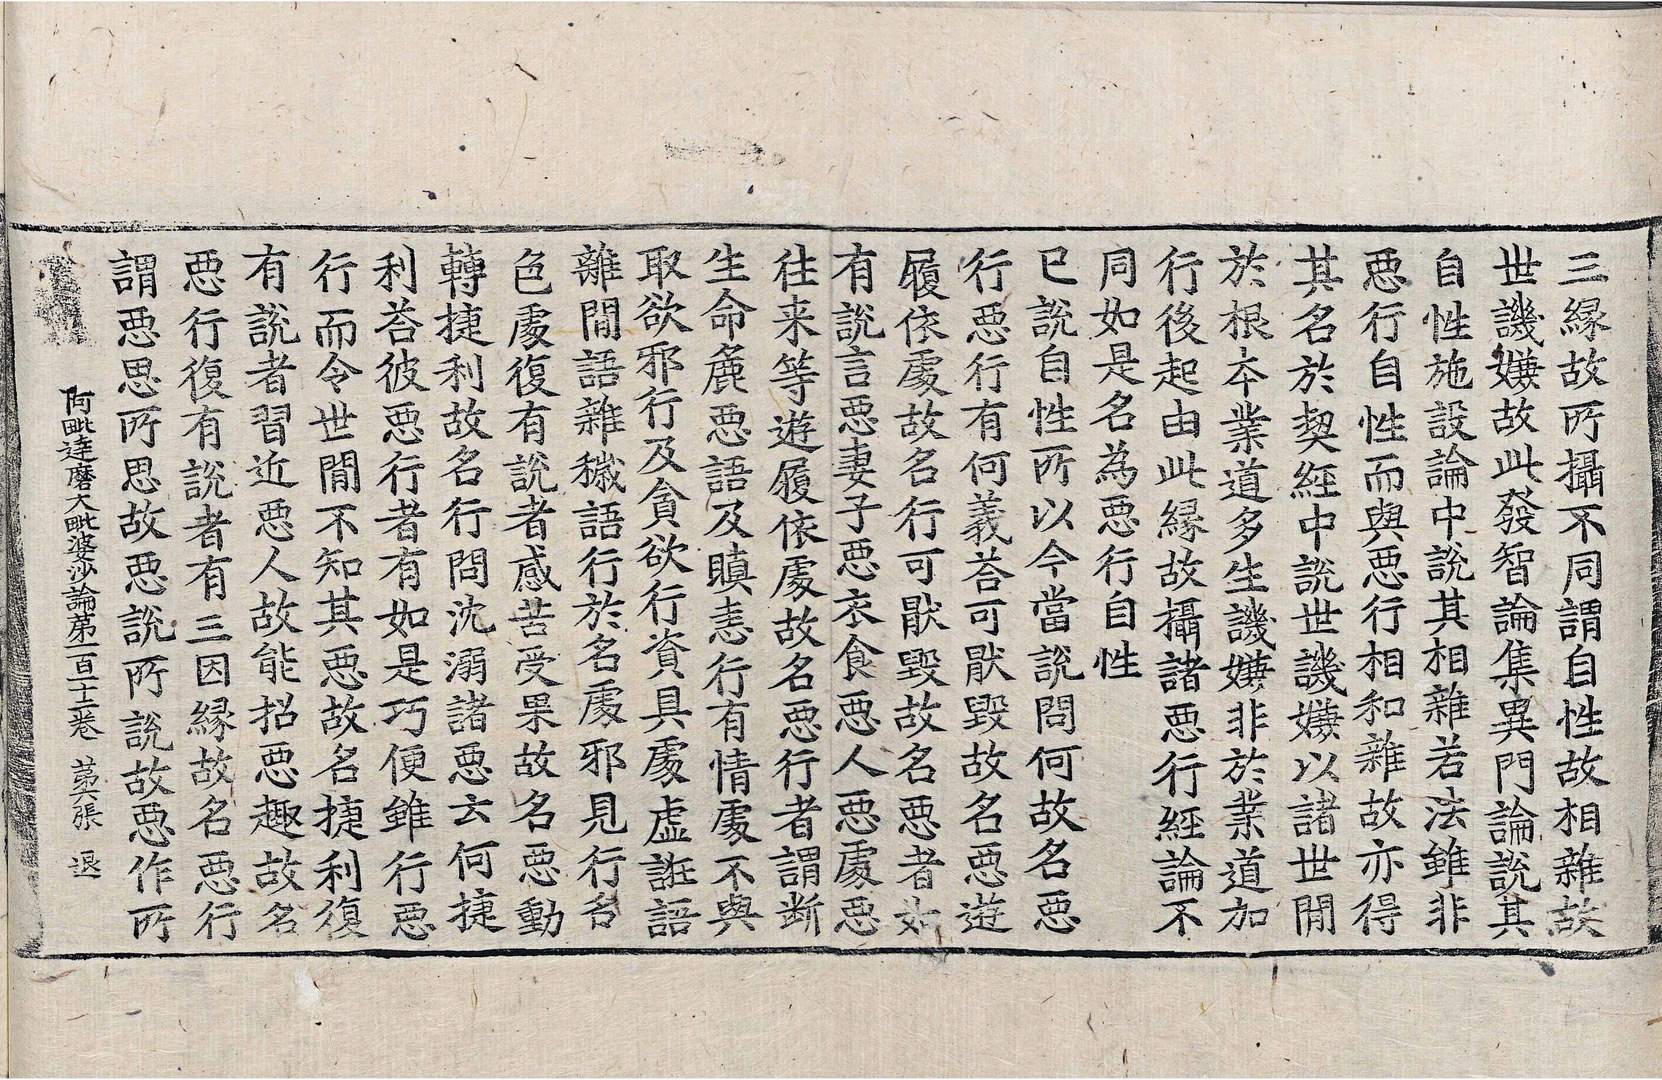 三縁故所攝不同謂自性故相雜故
世譏嫌故此發智論集異門論說其
自性施設論中說其相雜若法雖非
惡行自性而與惡行相和雜故亦得
其名於契經中說世譏嫌以諸世間
於根本業道多生譏嫌非於業道加
行後起由此縁故攝諸惡行經論不
同如是名為惡行自性
已說自性所以今當說問何故名惡
行惡行有何義荅可猒毀故名惡遊
履依處故名行可猒毀故名惡者如
有說言惡妻子惡衣食惡人惡處惡
往来等遊履依處故名惡行者謂斷
生命麁惡語及瞋恚行有情處不與
取欲邪行及貪欲行資具處虛誑語
離間語雜穢語行於名處邪見行名
色處復有說者感苦受果故名惡動
轉捷利故名行問沈溺諸惡云何捷
利荅彼惡行者有如是巧便雖行惡
行而令世間不知其惡故名捷利復
有說者習近惡人故能招惡趣故名
惡行復有說者有三因縁故名惡行
謂惡思所思故惡說所說故惡作所
阿毗達磨大毗婆沙論第一百一十二卷 第六張 退